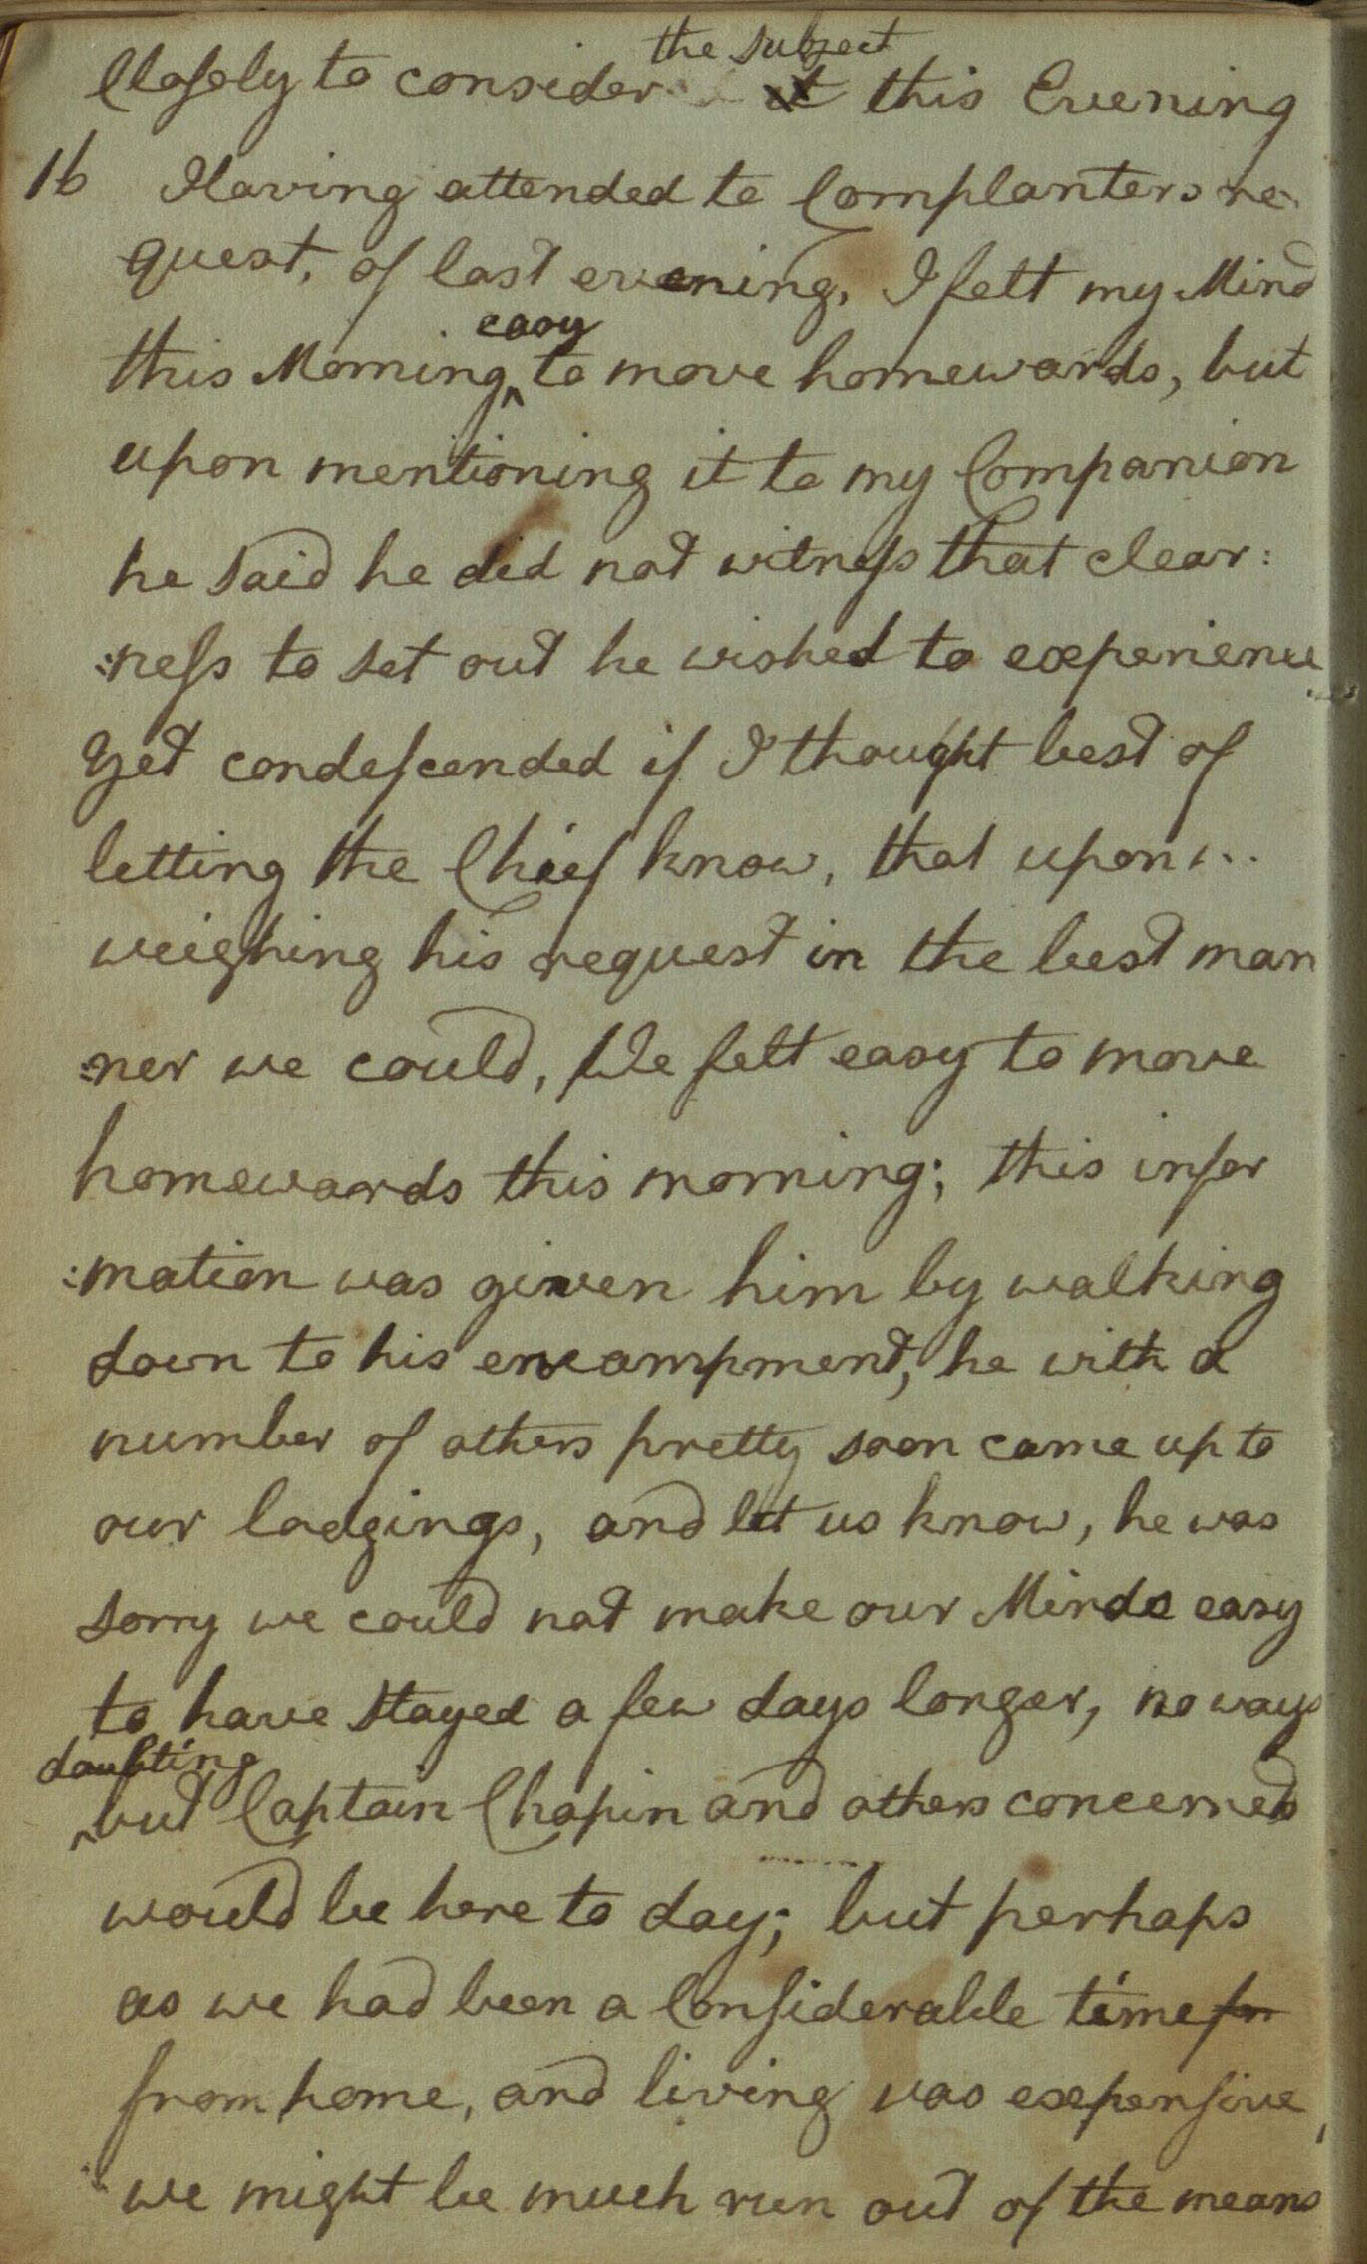 the subject
Closely to consider it this Evening
16 Having attended to Cornplanters re-
quest, of last evening, I felt my Mind
easy
this Morning ^ to move homewards, but
upon mentioning it to my Companion
he said he did not witness that clear:
:ness to set out he wished to experience
Yet condescended if I thought best of
letting the Chief know, that upon
weighing his request in the best man
:ner we could, We felt easy to move
homewards this morning; this infor
:mation was given him by walking
down to his encampment, he with a
number of others pretty soon came up to
our lodgings, and let us know, he was
sorry we could not make our Minds easy
to have stayed a few days longer, no ways
doubting
^ but Captain Chapin and others concerned
would be here to day; but perhaps
as we had been a Considerable time for
from home, and living was expensive,
we might be much run out of the means